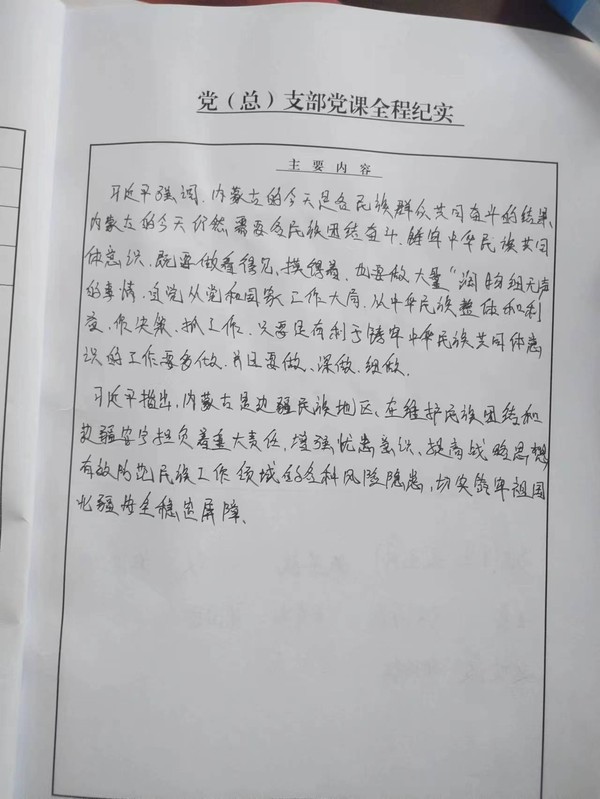 党（总）支部党课全程纪实
主要内容
习近平强调，内蒙古的今天是各民族群众共同奋斗的结果，
内蒙古的今天仍然需要各民族团结奋斗，铸牢中华民族共同
体意识，既要做看得见、摸得着，也要做大量“润物细无声
的事情，自觉从党和国家工作大局、从中华民族整体和利
益，作决策、抓工作，只要是有利于铸牢中华民族共同体意
识的工作要多做，并且要做、深做、细做，
习近平指出，内蒙古是边疆民族地区，在维护民族团结和
边疆安宁担负着重大责任，增强忧患意识、提高战略思想
有效防范民族工作领域的各种风险隐患，切实筑牢祖国
北疆安全稳定屏障、